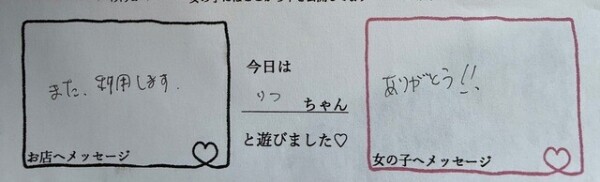 また、利用します.
お店へメッセージ
今日は
りつ ちゃん
と遊びました♡
ありがとう!!
女の子へメッセージ